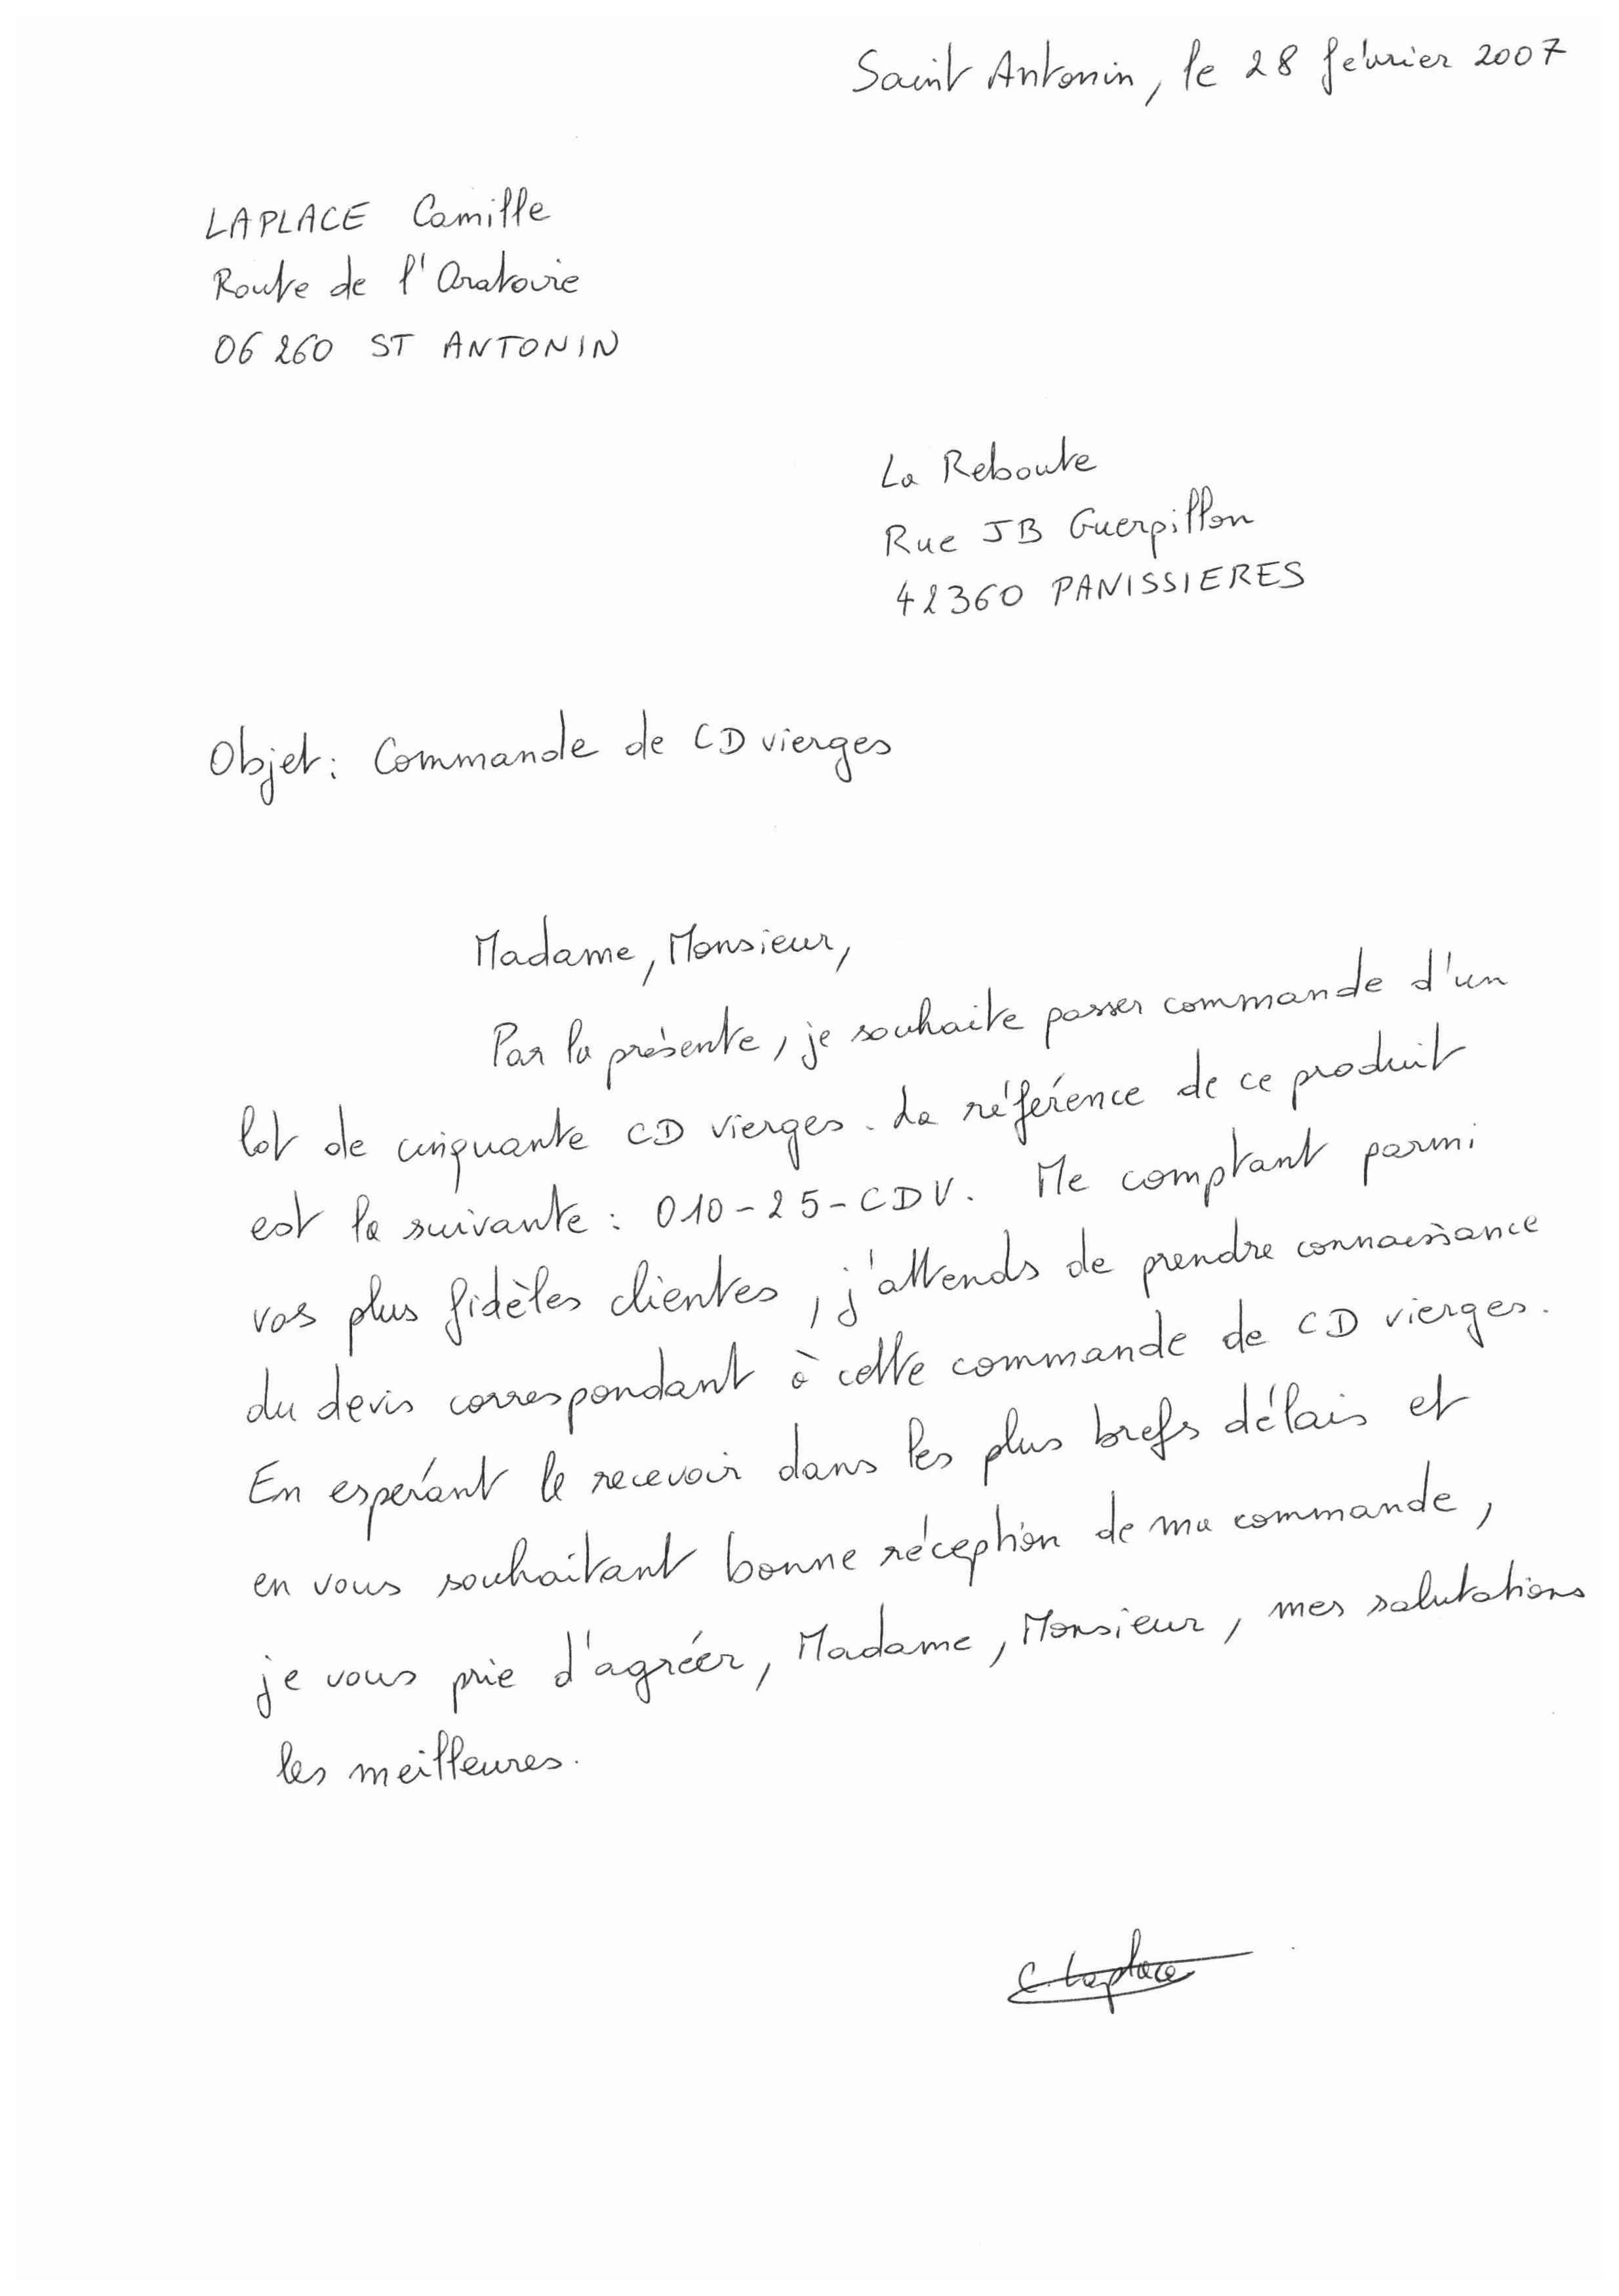 Saint Antonin, le 28 février 2007
LAPLACE Camille
Route de l'Oratoire
06260 ST ANTONIN
La Reboute
Rue JB Guerpillon
42360 PANISSIERES
Objet : Commande de CD vierges
Madame, Monsieur,
Par la présente, je souhaite passer commande d'un
lot de cinquante CD vierges. La référence de ce produit
est la suivante : 010-25-CDV. Me comptant parmi
vos plus fidèles clientes, j'attends de prendre connaissance
du devis correspondant à cette commande de CD vierges.
En espérant le recevoir dans les plus brefs délais et
en vous souhaitant bonne réception de ma commande,
je vous prie d'agréer, Madame, Monsieur, mes salutations
les meilleures.
C. Laplace